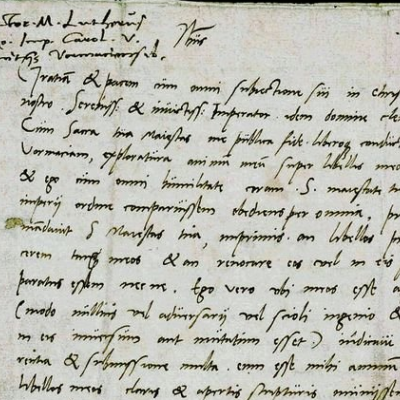 Doctor. M. Lutherus
Imp. Carol. V.
Ihs
Gratiam & pacem cum omni subiectione sui in Chris
nostro. Sereniss. & invictiss. Imperator. idem domine cle
Cum Sacra tua Maiestas me publica fide. liberoq conduct
Vormaciam, exploratura animum meum super libellis me
& ego cum omni humilitate coram. S. maiestate t
imperii ordine comparuissem obediens per omnia, pr
mandavit S Maiestas tua, imprimis. an libellos pr
cerem meos & an revocare eos vel in eis
paratus essem nec ne. Ego vero ubi meos esse a
(modo nullius vel adversarii vel scioli ingenio &
in eis inversum aut mutatum esset) indicavi
rentia & submissione multa. eam esse mihi animum
libellos meos claris & apertis scripturis muniissem